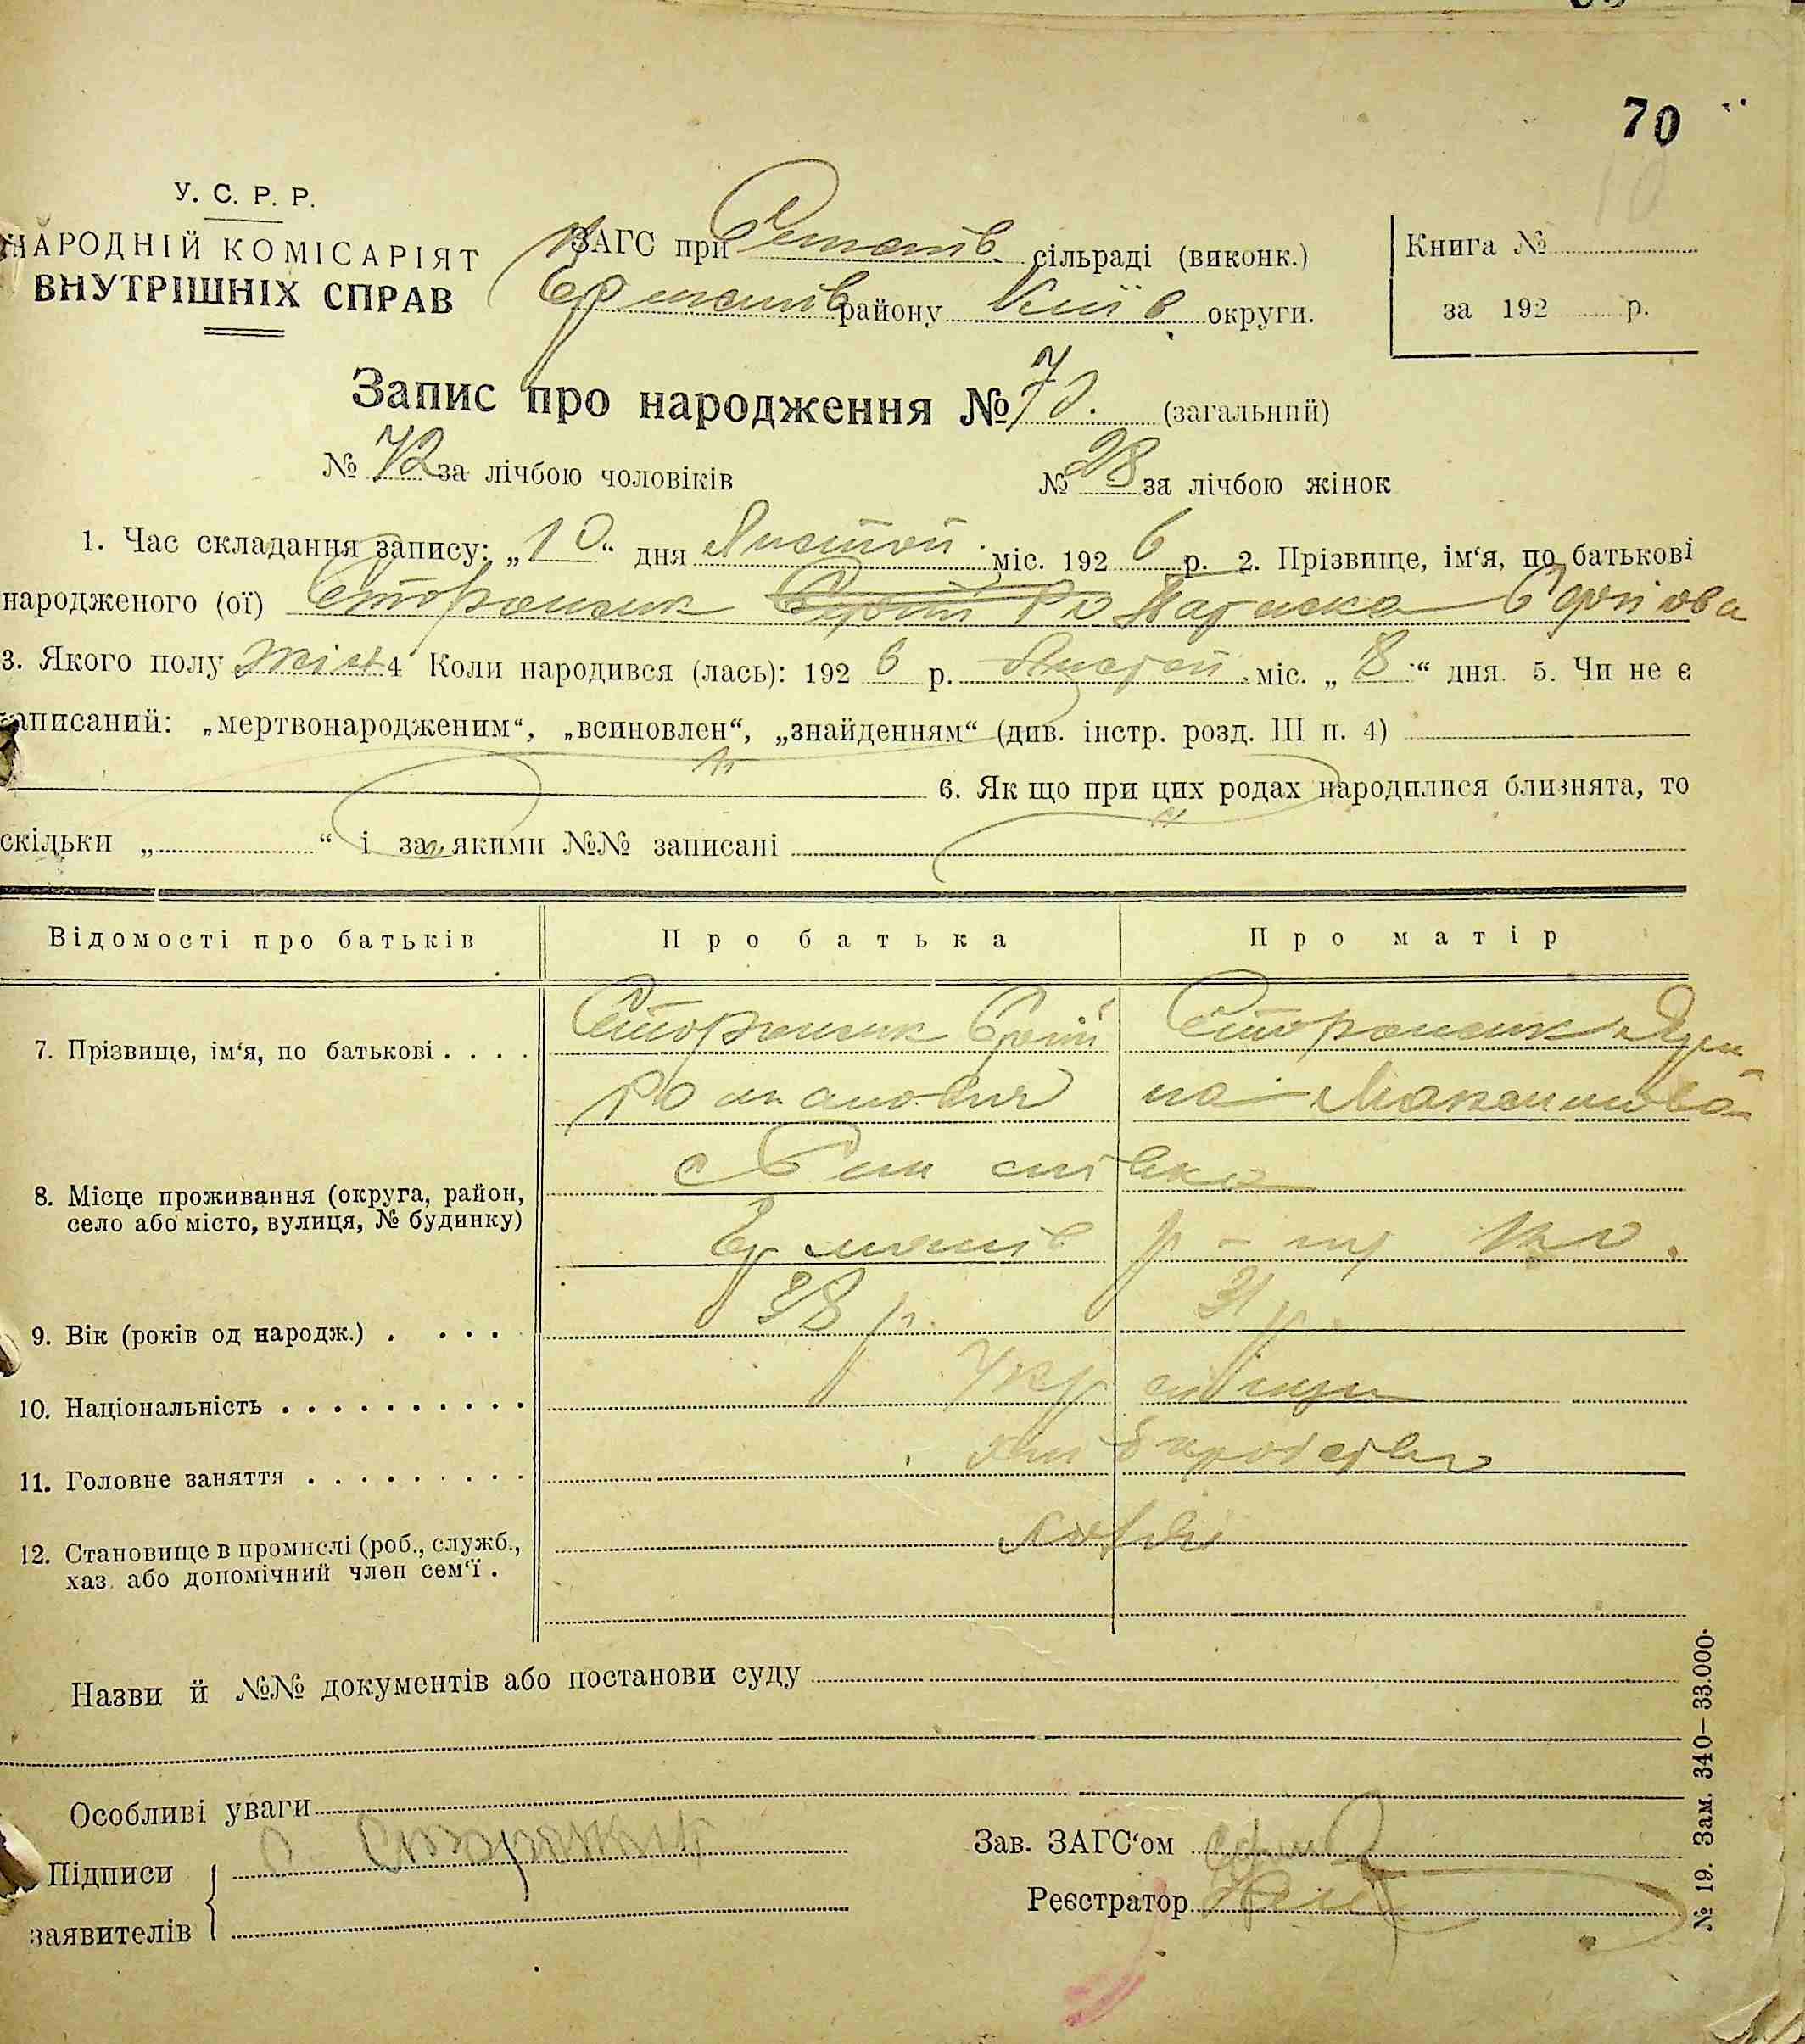 70
У. С. Р. Р.
НАРОДНІЙ КОМІСАРІЯТ
ВНУТРІШНІХ СПРАВ
ЗАГС при сільраді (виконк.)
району Київ округи.
Книга №
за 192 р.
Запис про народження № 70. (загальний)
№ 42 за лічбою чоловіків
№ 28 за лічбою жінок
1. Час складання запису: „10“ дня Листоп. міс. 1926 р. 2. Прізвище, ім‘я, по батькові
народженого (ої) Сторожик Параска Сергіова
3. Якого полу жін 4 Коли народився (лась): 1926 р. Листоп. міс. „8“ дня. 5. Чи не є
записаний: „мертвонародженим“, „всиновлен“, „знайденням“ (див. інстр. розд. III п. 4)
6. Як що при цих родах народилися близнята, то
скільки „ “ і за якими №№ записані
Відомості про батьків
Про батька
Про матір
7. Прізвище, ім‘я, по батькові . . . .
Сторожик Сергій
Сторожик
Романович
Максимова
8. Місце проживання (округа, район,
село або місто, вулиця, № будинку)
р-ну
9. Вік (років од народж.) . . . .
38 р.
31 р.
10. Національність . . . . . . . . . .
11. Головне заняття . . . . . . . . .
хліборобство
12. Становище в промислі (роб., служб.,
хаз. або допомічний член сем‘ї .
Назви й №№ документів або постанови суду
Особливі уваги
Підписи
заявителів
Зав. ЗАГС‘ом
Реєстратор
№ 19. Зам. 340—33.000.